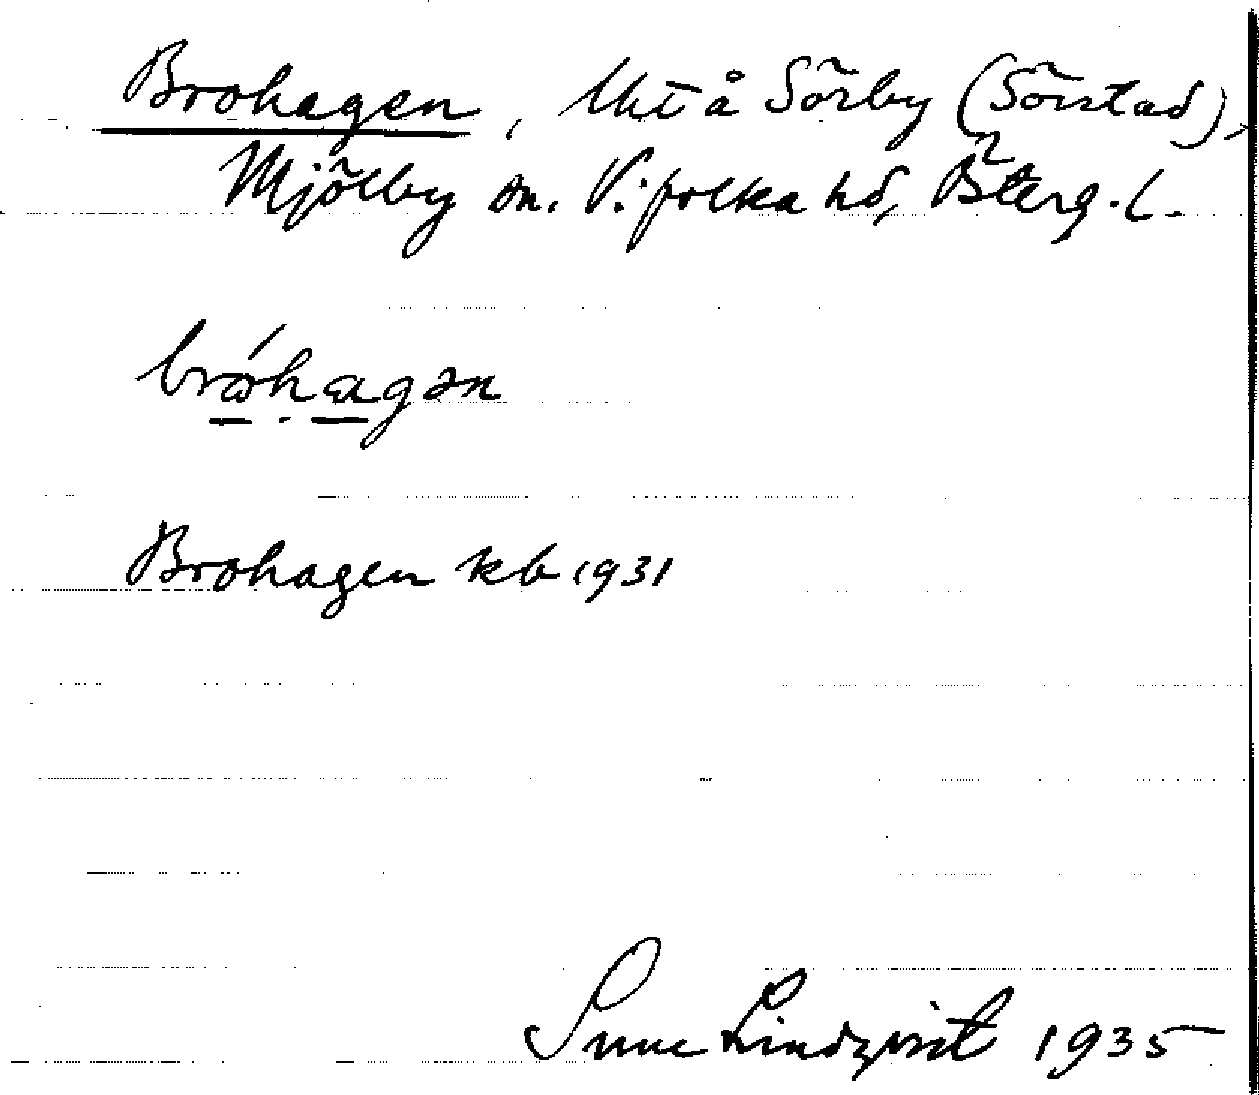 Brohagen, lht å Sörby (Sörstad),
Mjölby sn. V:folka hd, Österg. l.
bróhagən
Brohagen kb 1931
Sune Lindqvist 1935